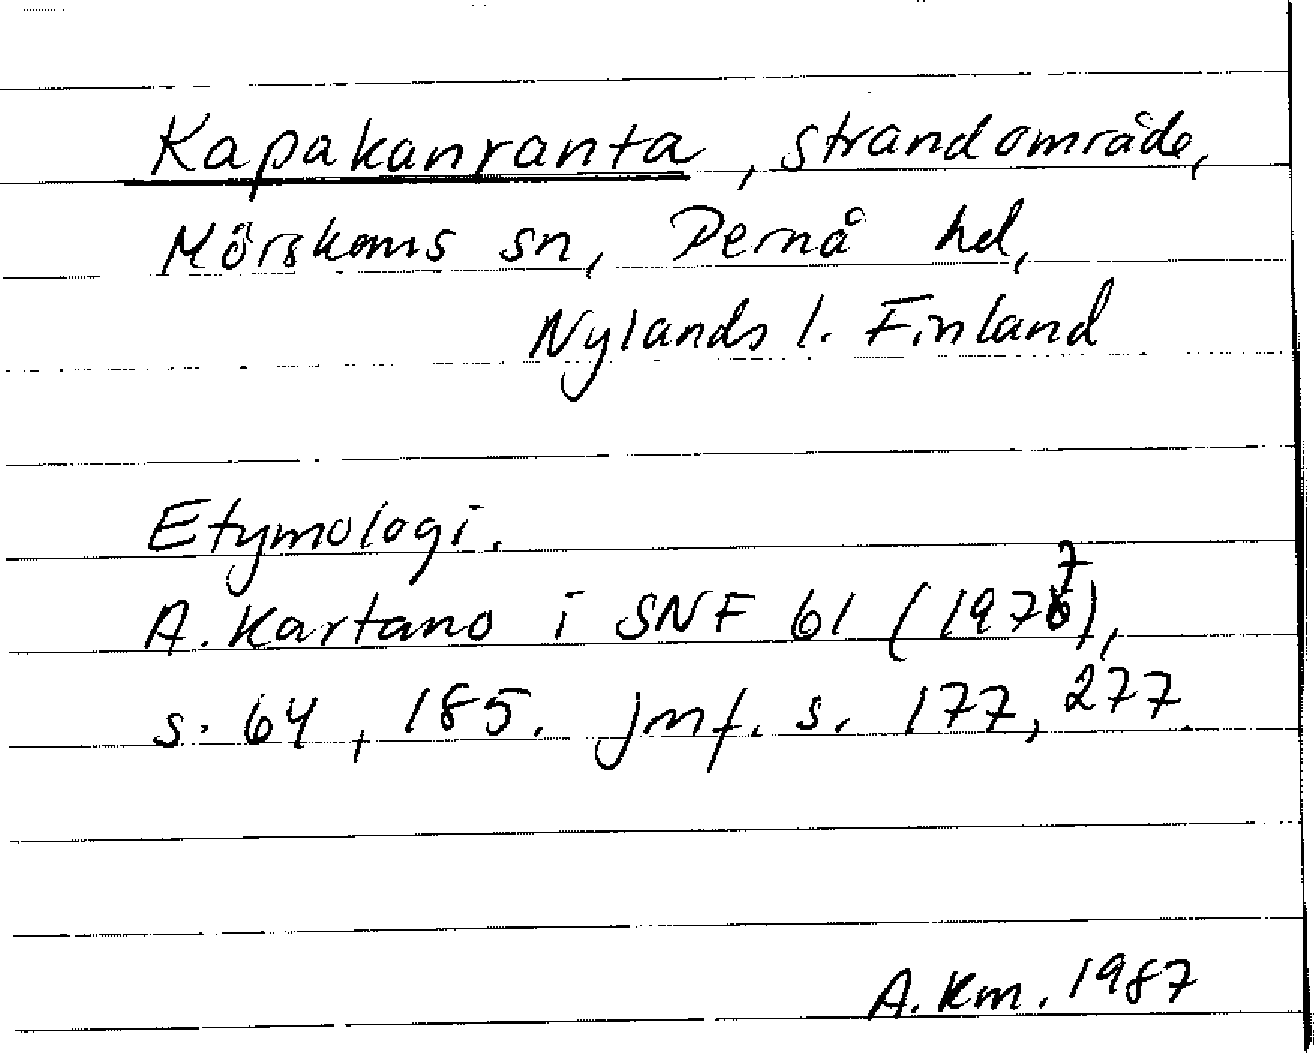 Kapakanranta, strandområde,
Mörskoms sn, Pernå hd,
Nylands l. Finland
Etymologi.
A. Kartano i SNF 61 (1977),
s. 64, 185. Jmf. s. 177, 277.
A. Km. 1987